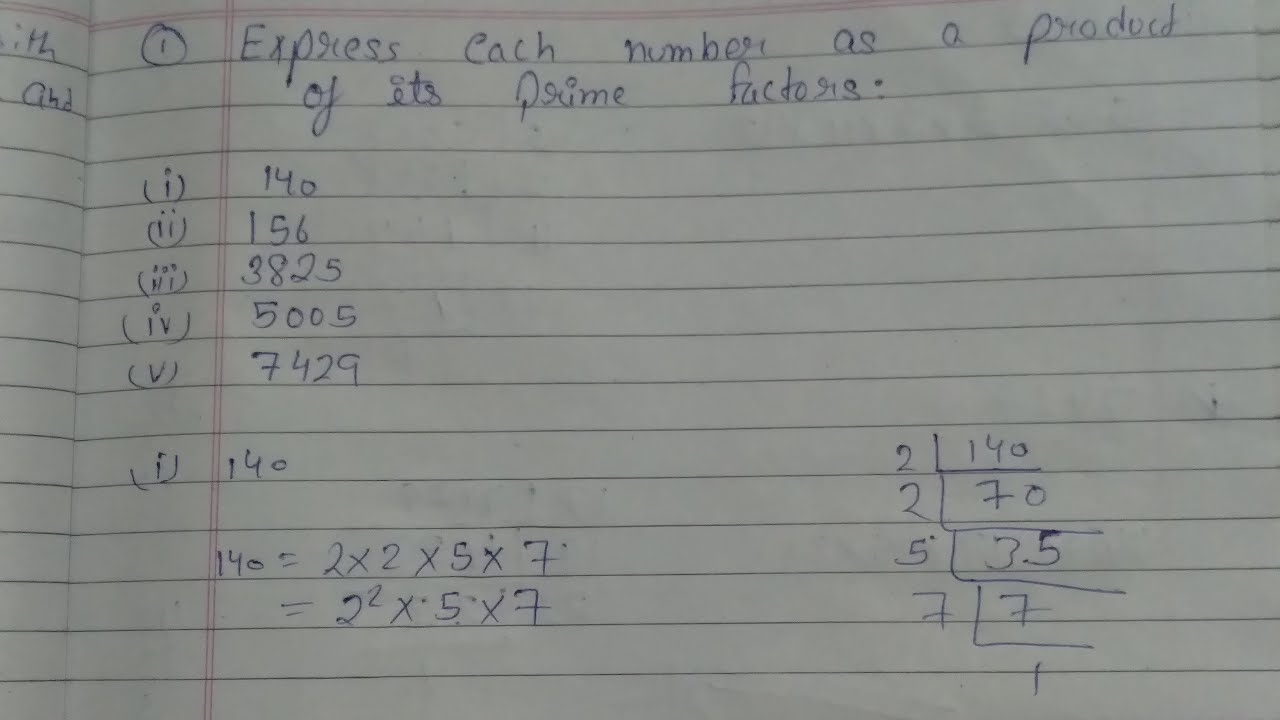 ith
and
① Express each number as a product
of its prime factors:
(i) 140
(ii) 156
(iii) 3825
(iv) 5005
(v) 7429
(i) 140
140 = 2×2×5×7
= 2²×5×7
2 | 140
2 | 70
5 | 35
7 | 7
1